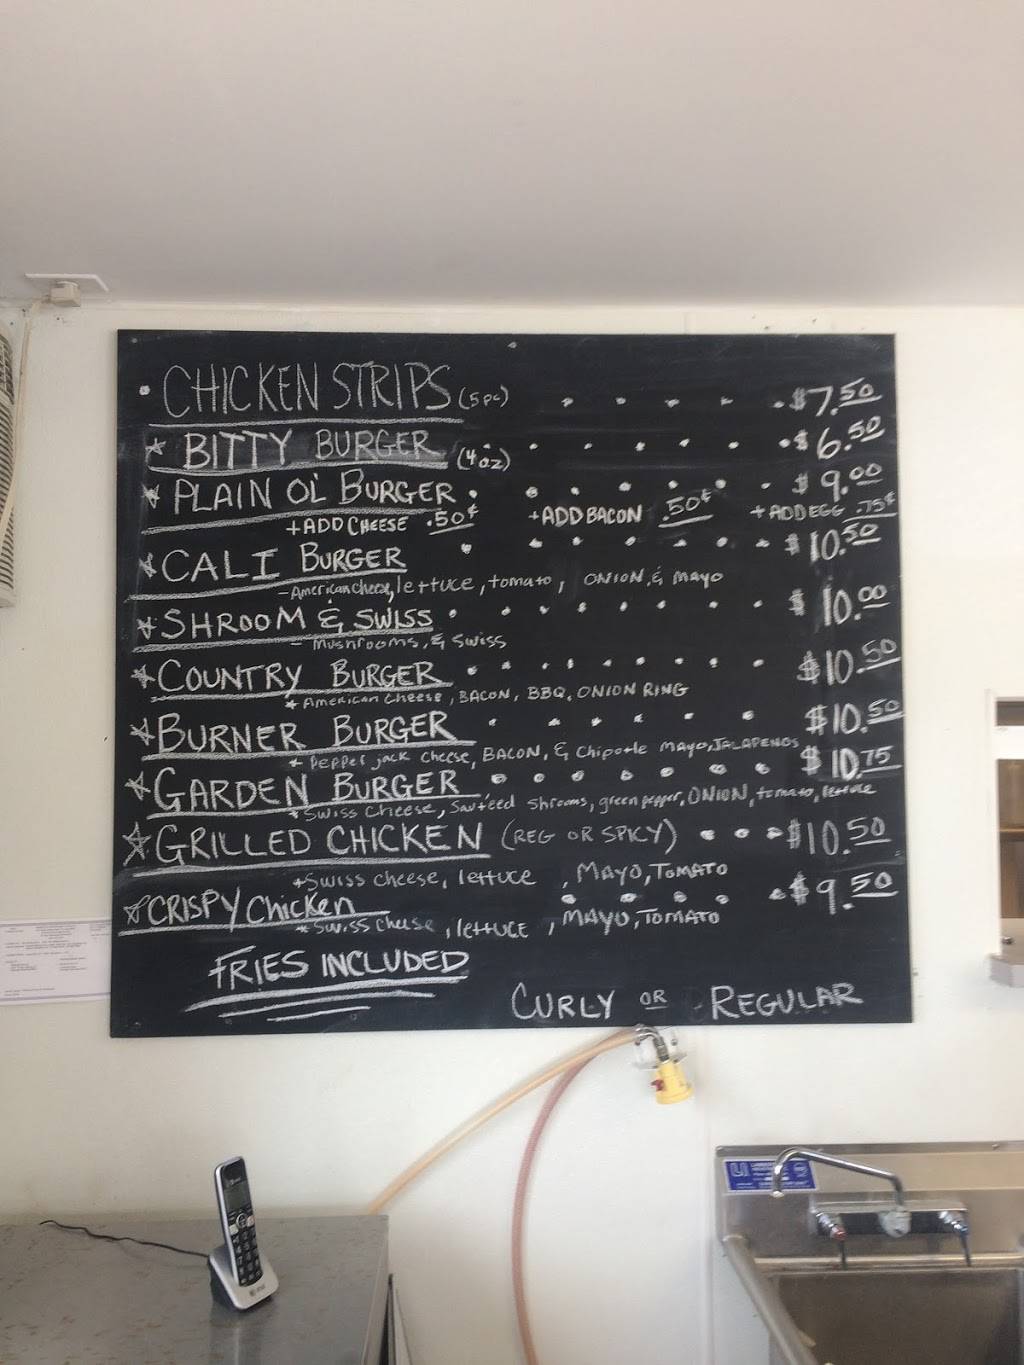 • CHICKEN STRIPS (5pc) . . . . . $7.50
* BITTY BURGER (4oz) . . . . . $6.50
* PLAIN OL' BURGER . . . . . . $9.00
+ADD CHEESE .50¢ +ADD BACON .50¢ +ADD EGG .75¢
* CALI BURGER . . . . . . $10.50
- American cheese, lettuce, tomato, ONION, & MAYO
* SHROOM & SWISS . . . . . . . $10.00
- Mushrooms, & Swiss
* COUNTRY BURGER . . . . . . . $10.50
* American Cheese, BACON, BBQ, ONION RING
* BURNER BURGER . . . . . . $10.50
* Pepper jack cheese, BACON, & Chipotle mayo, JALAPENOS
* GARDEN BURGER . . . . . . . $10.75
* Swiss Cheese, Sauteed Shrooms, green pepper, ONION, tomato, lettuce
* GRILLED CHICKEN (REG OR SPICY) . . . $10.50
* Swiss cheese, lettuce , MAYO, TOMATO
* CRISPY Chicken . . . . . $9.50
* Swiss cheese, lettuce , MAYO, TOMATO
FRIES INCLUDED
CURLY OR REGULAR